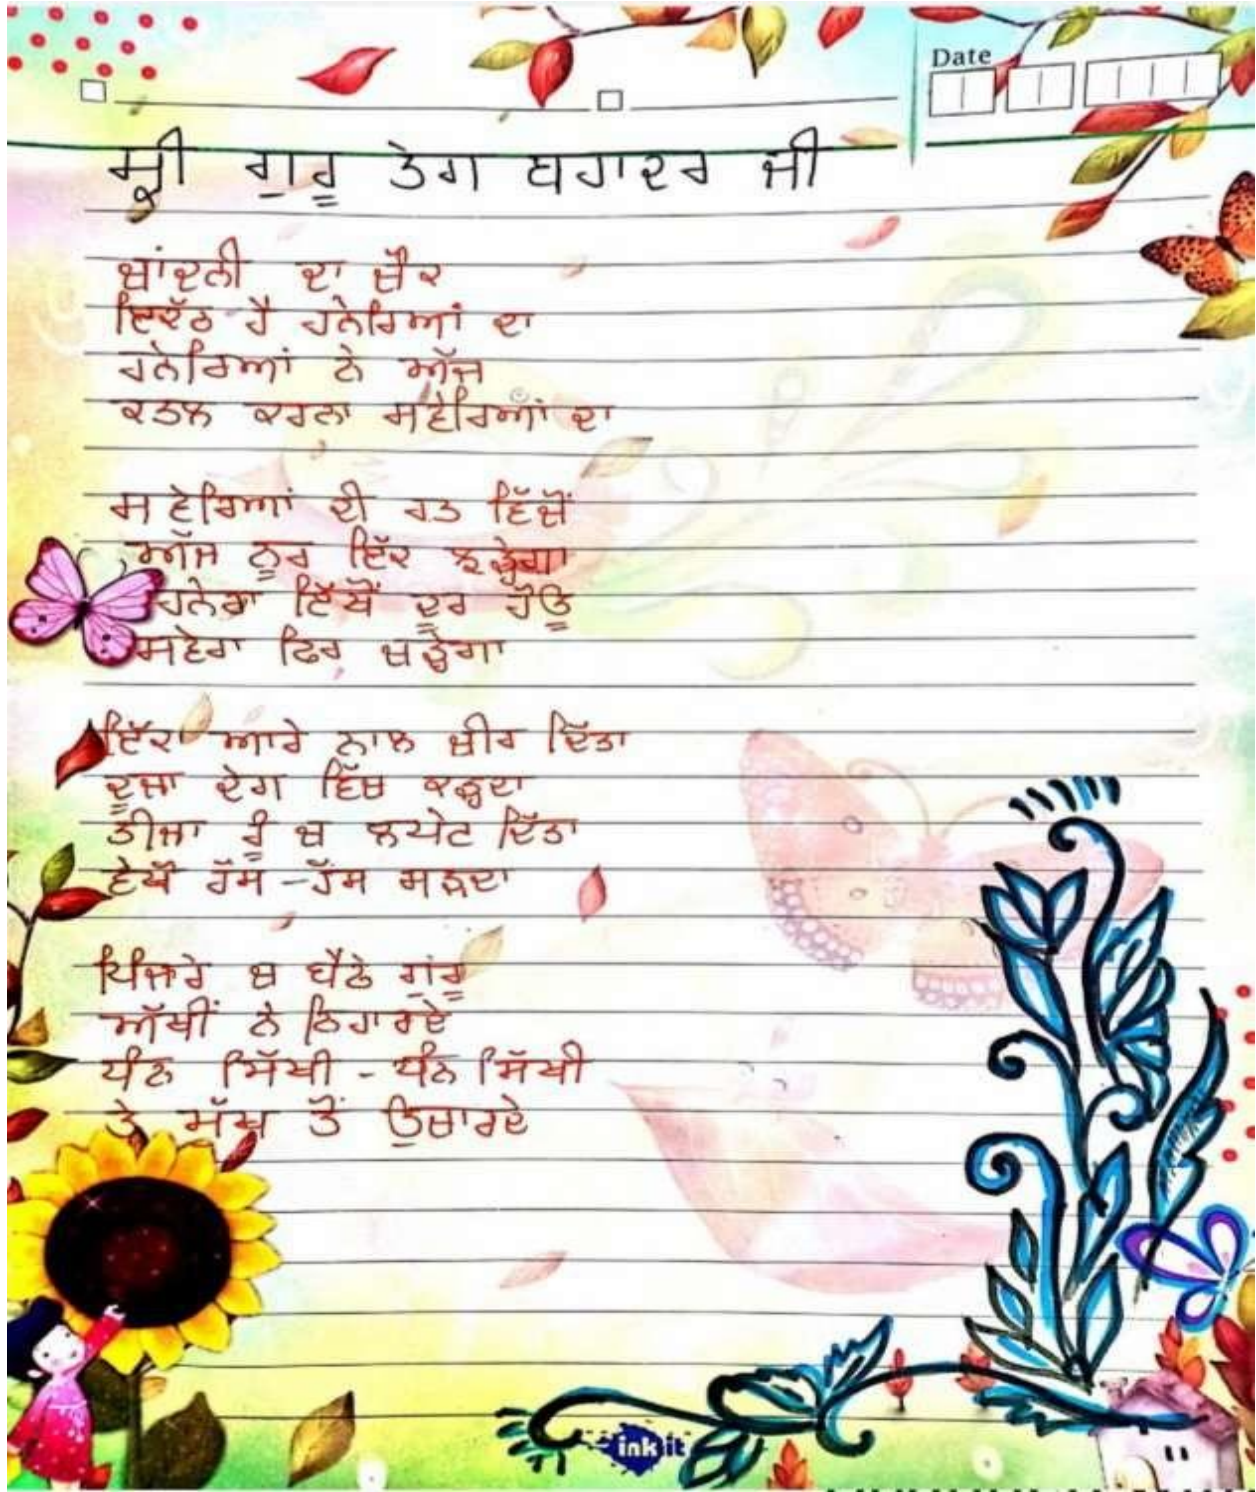 Date
ਸ੍ਰੀ ਗੁਰੂ ਤੇਗ ਬਹਾਦਰ ਜੀ
ਚਾਂਦਨੀ ਦਾ ਚੌਕ
ਇਕੱਠ ਹੈ ਹਨੇਰਿਆਂ ਦਾ
ਹਨੇਰਿਆਂ ਨੇ ਅੱਜ
ਕਤਲ ਕਰਨਾ ਸਵੇਰਿਆਂ ਦਾ
ਸਵੇਰਿਆਂ ਦੀ ਰਤ ਵਿੱਚੋਂ
ਅੱਜ ਨੂਰ ਇੱਕ ਝੜ੍ਹੇਗਾ
ਹਨੇਰਾ ਇੱਥੋਂ ਦੂਰ ਹੋਊ
ਸਵੇਰਾ ਫਿਰ ਚੜ੍ਹੇਗਾ
ਇੱਕ ਆਰੇ ਨਾਲ ਚੀਰ ਦਿੱਤਾ
ਦੂਜਾ ਦੇਗ ਵਿੱਚ ਕੜ੍ਹਦਾ
ਤੀਜਾ ਰੂੰ ਚ ਲਪੇਟ ਦਿੱਤਾ
ਵੇਖੋ ਹੱਸ-ਹੱਸ ਸੜਦਾ
ਪਿੰਜਰੇ ਚ ਬੈਠੇ ਗੁਰੂ
ਅੱਖੀਂ ਨੇ ਨਿਹਾਰਦੇ
ਧੰਨ ਸਿੱਖੀ - ਧੰਨ ਸਿੱਖੀ
ਤੇ ਮੁੱਖ ਤੋਂ ਉਚਾਰਦੇ
ink it